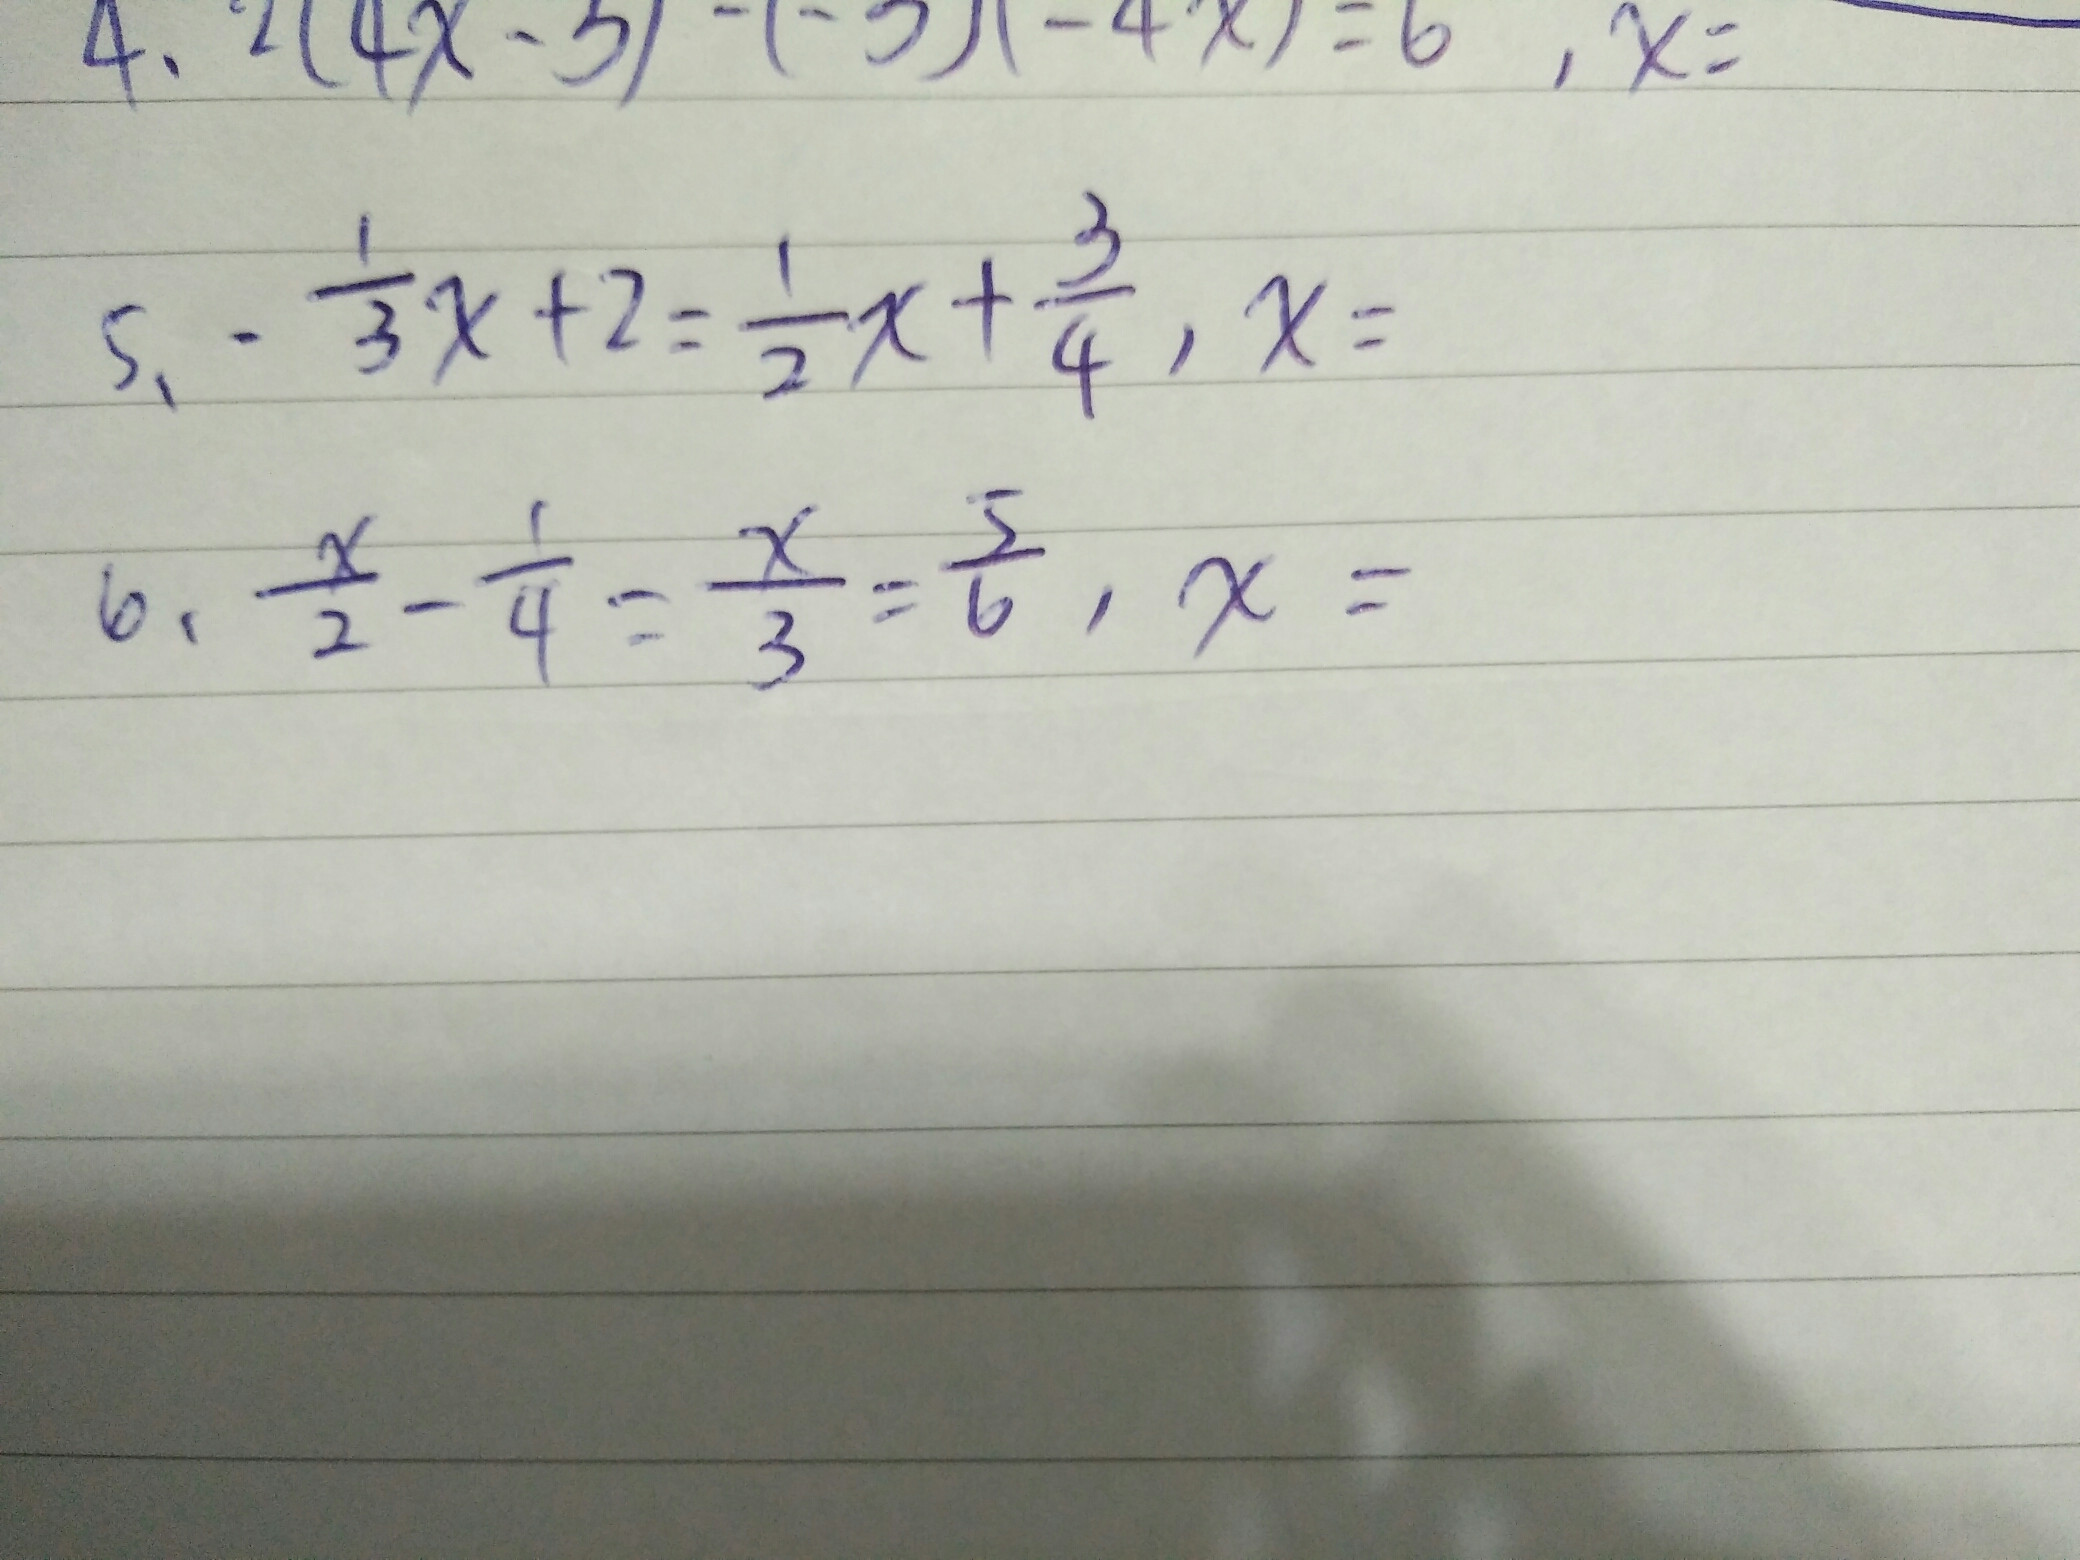 4. 2(4x-5)-(-5)(-4x)=6 , x=
5. -1/3x+2=1/2x+3/4, x=
6. x/2-1/4=x/3=5/6, x=